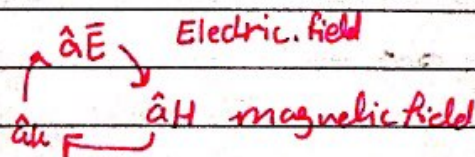 âĒ Electric. field
âk âH magnetic field